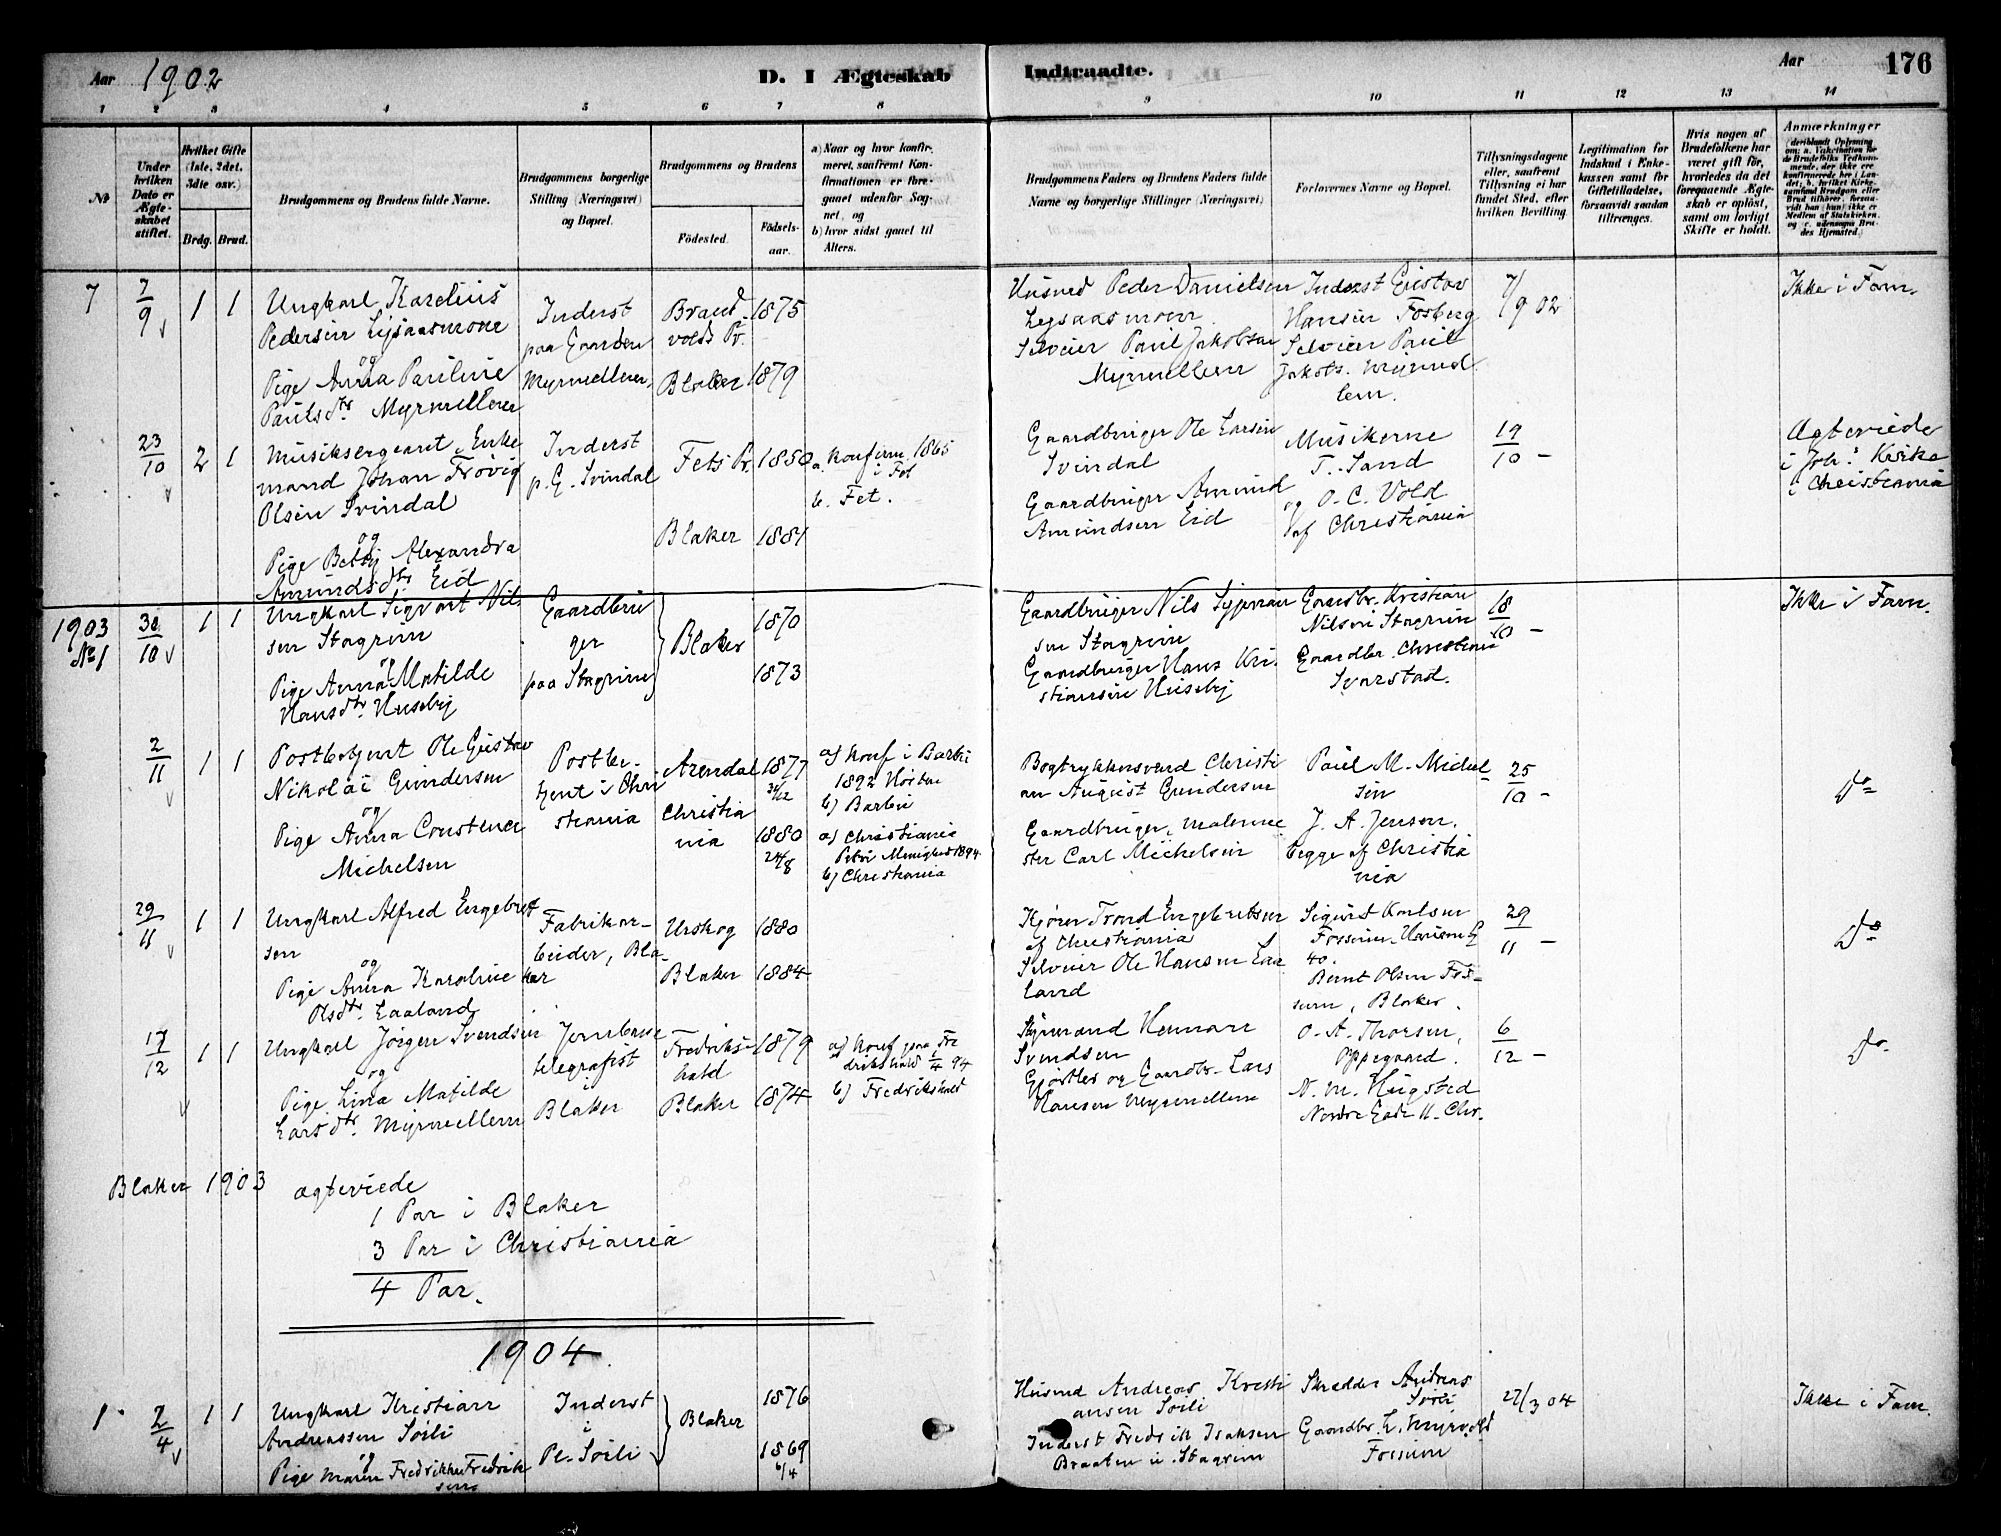 Aar 1902
D. I Ægteskab
Indtraadte.
Aar
176
1 2 3 4 5 6 7 8 9 10 11 12 13 14
No
Under hvilken Dato er Ægteskabet stiftet.
Hvilket Gifte (1ste, 2det, 3die osv.)
Brdg. Brud.
Brudgommens og Brudens fulde Navne.
Brudgommens borgerlige Stilling (Næringsvei) og Bopæl.
Brudgommens og Brudens
Fødested.
Fødselsaar.
a) Naar og hvor konfirmeret, saafremt Konfirmationen er foregaaet udenfor Sognet, og
b) hvor sidst gaaet til Alters.
Brudgommens Faders og Brudens Faders fulde Navne og borgerlige Stillinger (Næringsvei)
Forlovernes Navne og Bopæl.
Tillysningsdagene eller, saafremt Tillysning ei har fundet Sted, efter hvilken Bevilling.
Legitimation for Indskud i Enkekassen samt for Giftetilladelse, forsaavidt saadan tiltrænges.
Hvis nogen af Brudefolkene har været gift før, hvorledes da det foregaaende Ægteskab er opløst, samt om lovligt Skifte er holdt.
Anmærkninger
7
7/9
1 1
Ungkarl Karelius
Pedersen Lysaasmoen
og
Pige Anna Pauline
Paulsdtr. Myrmellem
Inderst
paa Gaarden
Myrmellem
Brand
volds Pr.
Blaker
1875
1879
Husmd Peder Danielsen
Lysaasmoen
Selveier Paul Jakobsen
Myrmellem
Inderst Gustav
Hansen Fosberg
Selveier Paul
Jakobs. Myrmel
lem.
7/9 02
Ikke i Fam.
23/10
2 1
Musiksergeant, Enke
mand Johan Frövig
Olsen Svindal
og
Pige Betsy Alexandra
Amundsdtr Eid
Inderst
p. G. Svindal
Fets Pr.
Blaker
1850
1881
a. Konfirm. 1865
i Fet
b. Fet.
Gaardbruger Ole Larsen
Svindal
Gaardbruger Amund
Amundsen Eid
Musikerne
T. Sand
og O. C. Vold
af Christiania
19/10 -
Ægteviede
i Joh.s Kirke
i Christiania
1903
No 1
30/10
1 1
Ungkarl Sigvart Nil
sen Stagrim
og
Pige Anna Matilde
Hansdtr. Huseby
Gaardbru
ger
paa Stagrim
Blaker
1870
1873
Gaardbruger Nils
sen Stagrim
Gaardbruger Hans Kri
stiansen Huseby
Gaardbr. Kristian
Nilsen Stagrim
Gaardbr. Christian
Svarstad.
18/10 -
Ikke i Fam.
2/11
1 1
Postbetjent Ole Gustav
Nikolai Gundersen
og
Pige Anna Constance
Michelsen
Postbe-
tjent i Chri
stiania
Arendal
Christia
nia
1877
1880
24/8
a) Konf i Barbu
1892 Hösten
b) Barbu
a) Christiania
Petri Menighed 1894
b) Christiania
Bogtrykkersvend Christi
an August Gundersen
Gaardbruger, malerme
ster Carl Michelsen
Paul M. Michel
sen
J. A. Jensen.
begge af Christia
nia
25/10 -
Do
29/11
1 1
Ungkarl Alfred Engebret
sen
og
Pige Anna Karoline
Olsdtr. Laaland
Fabrikar-
beider, Bla-
ker
Urskog
Blaker
1880
1884
Kjörer Trond Engebretsen
af Christiania
Selveier Ole Hansen Laa
land
Sigurd Karlsen
40.
Bernt Olsen Fos-
sum, Blaker.
29/11 -
Do
17/12
1 1
Ungkarl Jörgen Svendsen
og
Pige Lina Matilde
Larsdtr. Myrmellem
Jernbane
telegrafist
i
Blaker
Fredriks-
hald
Blaker
1879
1874
a) Konf paa Fre
drikshald 1/4 94
b) Fredrikshald
Styrmand Herman
Svendsen
og Gaardbr. Lars
Hansen Myrmellem
O. A. Thorsen,
Oppegaard.
N. M. Hugsted
Nordre Gade 11. Chr.
6/12 -
Do.
Blaker 1903
ægteviede
1 Par i Blaker
3 Par i Christiania
4 Par.
1904
1
2/4
1 1
Ungkarl Kristian
Andreassen Söili
og
Pige Maren Fredrikke Fredrik
sen
Inderst
i
Pl. Söili
Blaker
1876
1869
6/4
Husmd Andreas Kristi
ansen Söili
Inderst Fredrik Isaksen
Braaten u. Stagrim
Skrædder Andreas
Söili
Gaardbr. L. Myrvold
Fossum
27/3 04
Ikke i Fam.